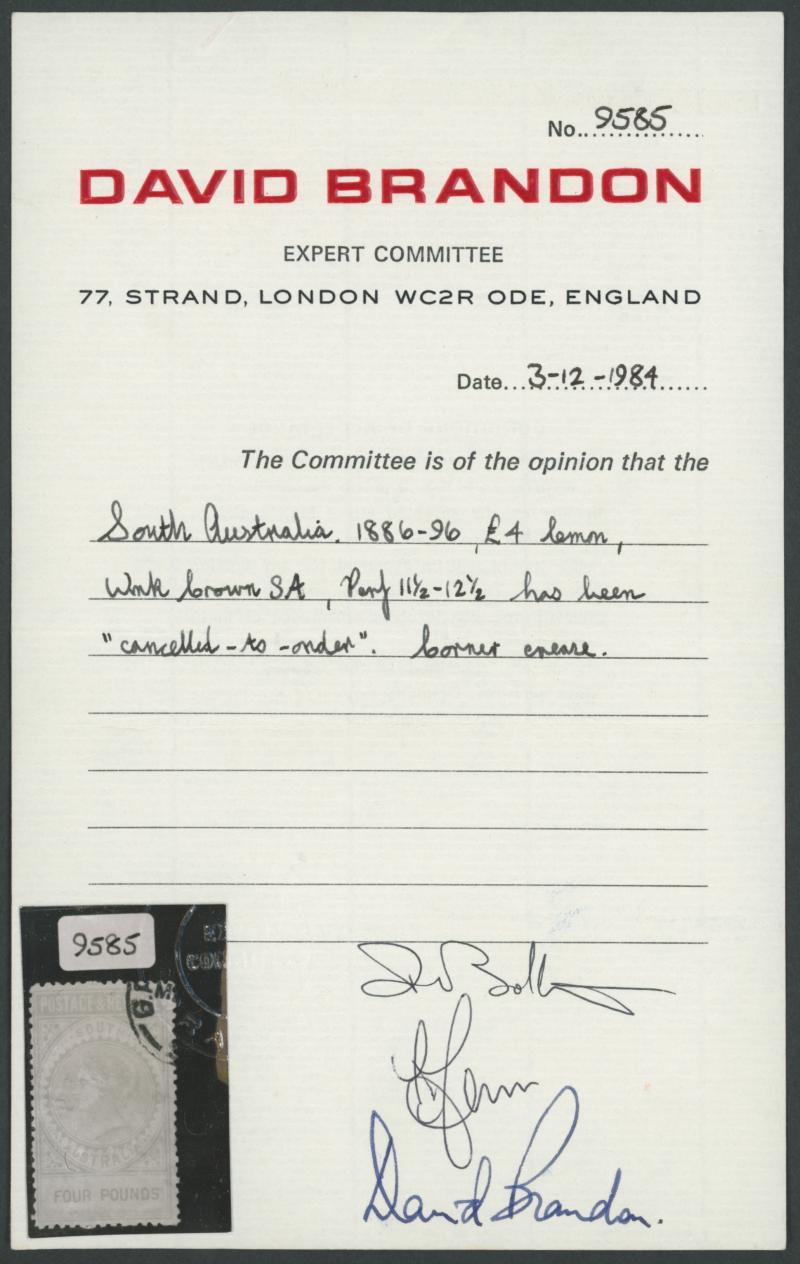 No. 9585
DAVID BRANDON
EXPERT COMMITTEE
77, STRAND, LONDON WC2R ODE, ENGLAND
Date 3-12-1984
The Committee is of the opinion that the
South Australia. 1886-96, £4 lemon,
Wmk Crown SA, Perf 11½-12½ has been
"cancelled-to-order". Corner crease.
9585
POSTAGE &
SOUTH
FOUR POUNDS
David Brandon.